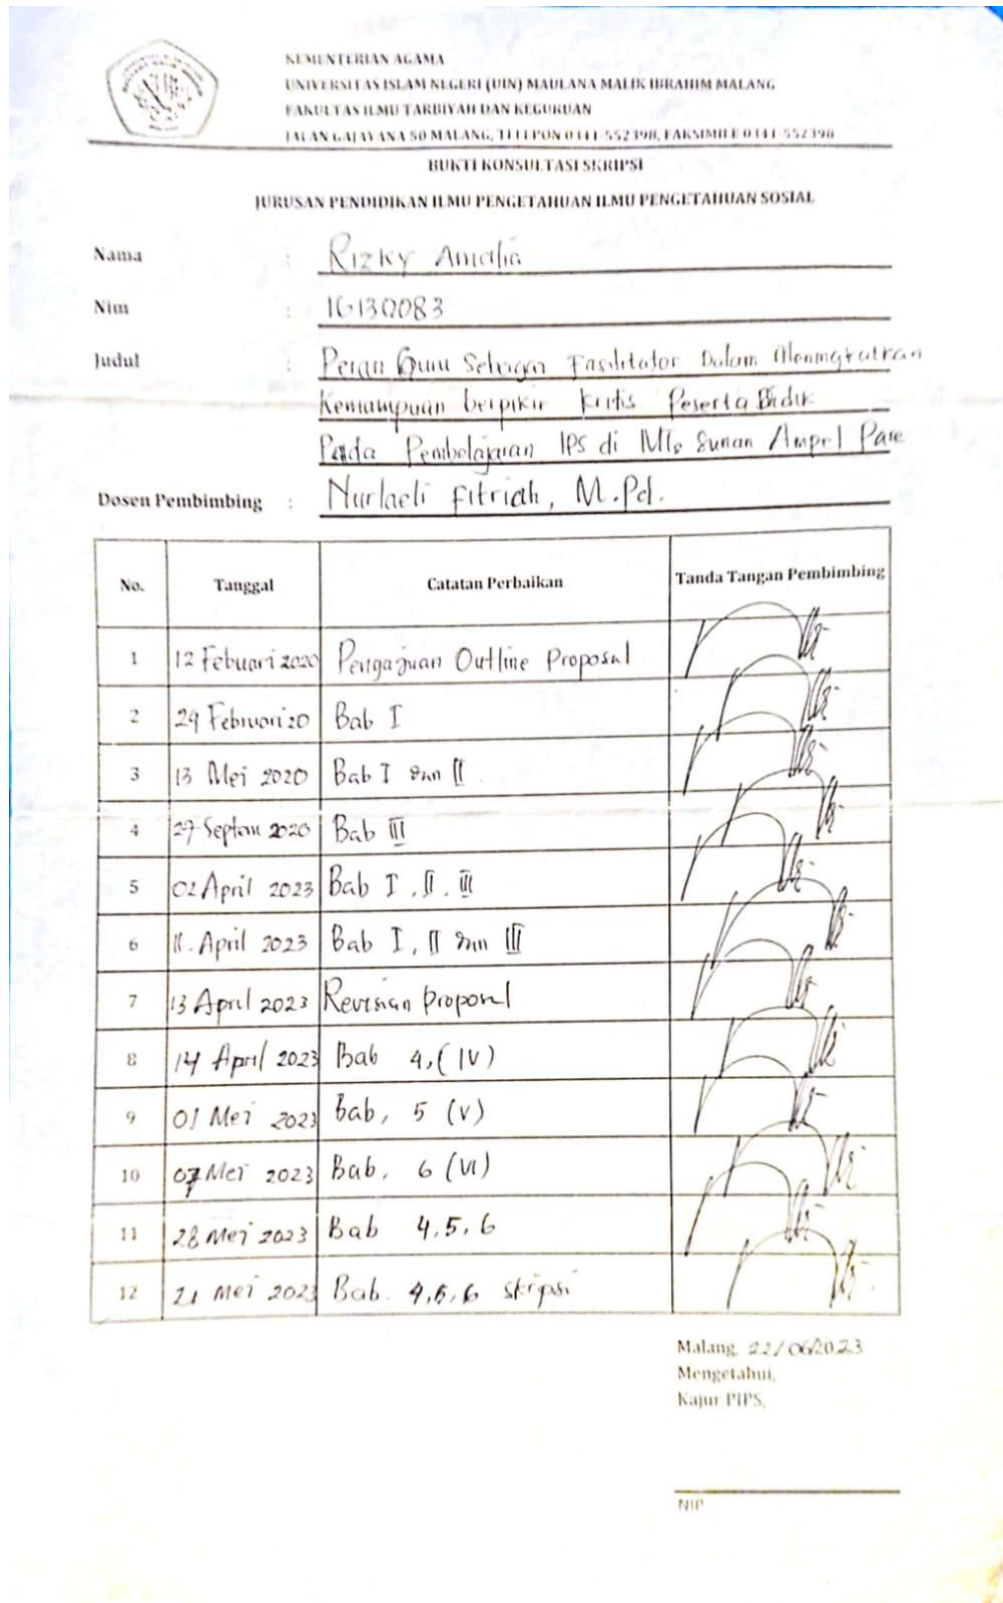 KEMENTERIAN AGAMA
UNIVERSITAS ISLAM NEGERI (UIN) MAULANA MALIK IBRAHIM MALANG
FAKULTAS ILMU TARBIYAH DAN KEGURUAN
JALAN GAJAYANA 50 MALANG, TELEPON 0341-552398, FAKSIMILE 0341-552398
BUKTI KONSULTASI SKRIPSI
JURUSAN PENDIDIKAN ILMU PENGETAHUAN ILMU PENGETAHUAN SOSIAL
Nama : Rizky Amalia
Nim : 16130083
Judul : Peran Guru Sebagai Fasilitator Dalam Meningkatkan
Kemampuan berpikir kritis Peserta Didik
Pada Pembelajaran IPS di MTs Sunan Ampel Pare
Dosen Pembimbing : Nurlaeli Fitriah, M.Pd.
No. Tanggal Catatan Perbaikan Tanda Tangan Pembimbing
1 12 Febuari 2020 Pengajuan Outline Proposal
2 24 Februari 20 Bab I
3 13 Mei 2020 Bab I dan II
4 27 Septem 2020 Bab III
5 02 April 2023 Bab I, II, III
6 11. April 2023 Bab I, II dan III
7 13 April 2023 Revisian proposal
8 14 April 2023 Bab 4,(IV)
9 01 Mei 2023 Bab, 5 (V)
10 07 Mei 2023 Bab, 6 (VI)
11 28 Mei 2023 Bab 4,5,6
12 21 Mei 2023 Bab. 4,5,6 skripsi
Malang, 22/06/2023
Mengetahui,
Kajur PIPS,
NIP